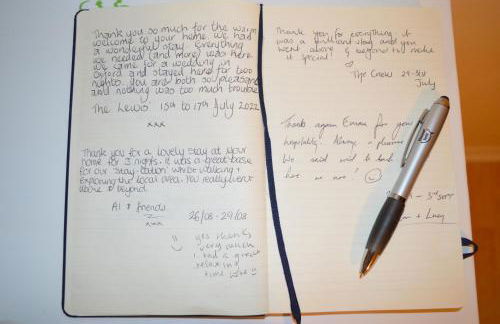 Thank you so much for the warm
welcome to your home. We had
a wonderful stay. Everything
we needed (and more) was here.
We came for a wedding in
Oxford and stayed here for two
nights. You are both so pleasant
and nothing was too much trouble.
The Lewis 15th to 17th July 2022
xxx
Thank you for a lovely stay at your
home for 3 nights. It was a great base
for our 'staycation' whilst walking +
exploring the local area. You really went
above & beyond.
Al & friends 26/08 - 29/08
xxx
yes thanks
very much
I had a great
relaxing
time
Thank you for everything it
was a brilliant stay and you
went above & beyond to make
it special!
The Crew 29-31st
July
Thanks again Emma for your
hospitality. Always a pleasure
We said we'd be back
here we are!
- 3rd Sept
+ Lucy